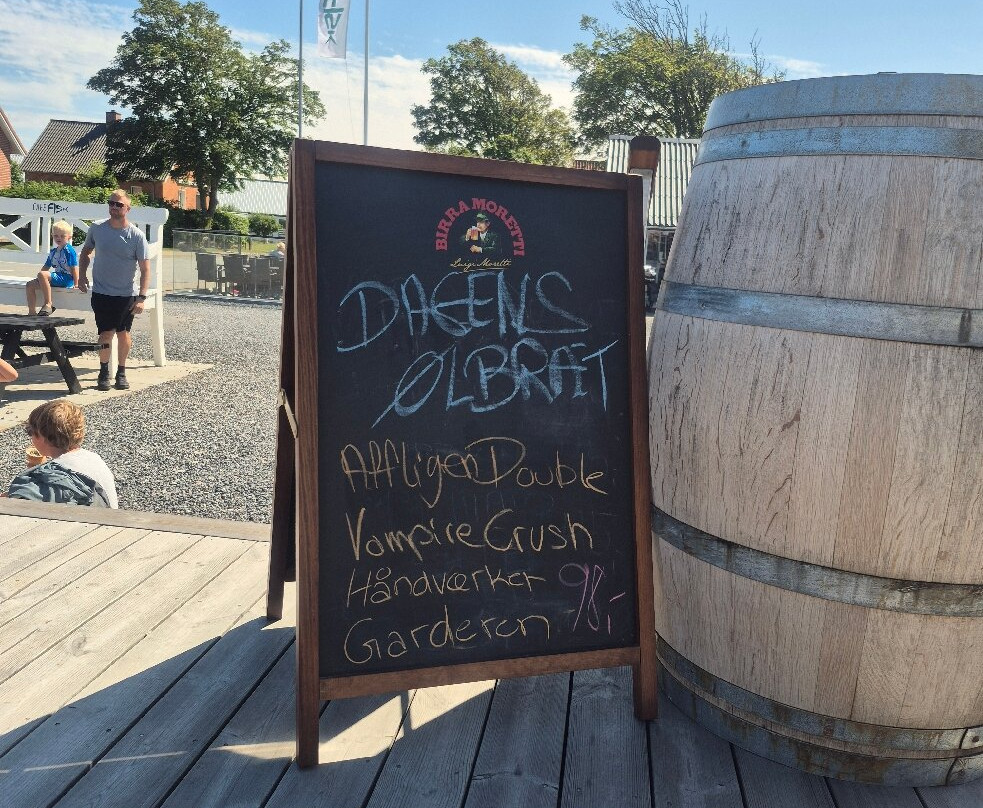 BIRRA MORETTI
Luigi Moretti
DAGENS
ØLBRÆT
Affligen Double
Vampire Crush
Håndværker 98,-
Garderen
CAFE FISK